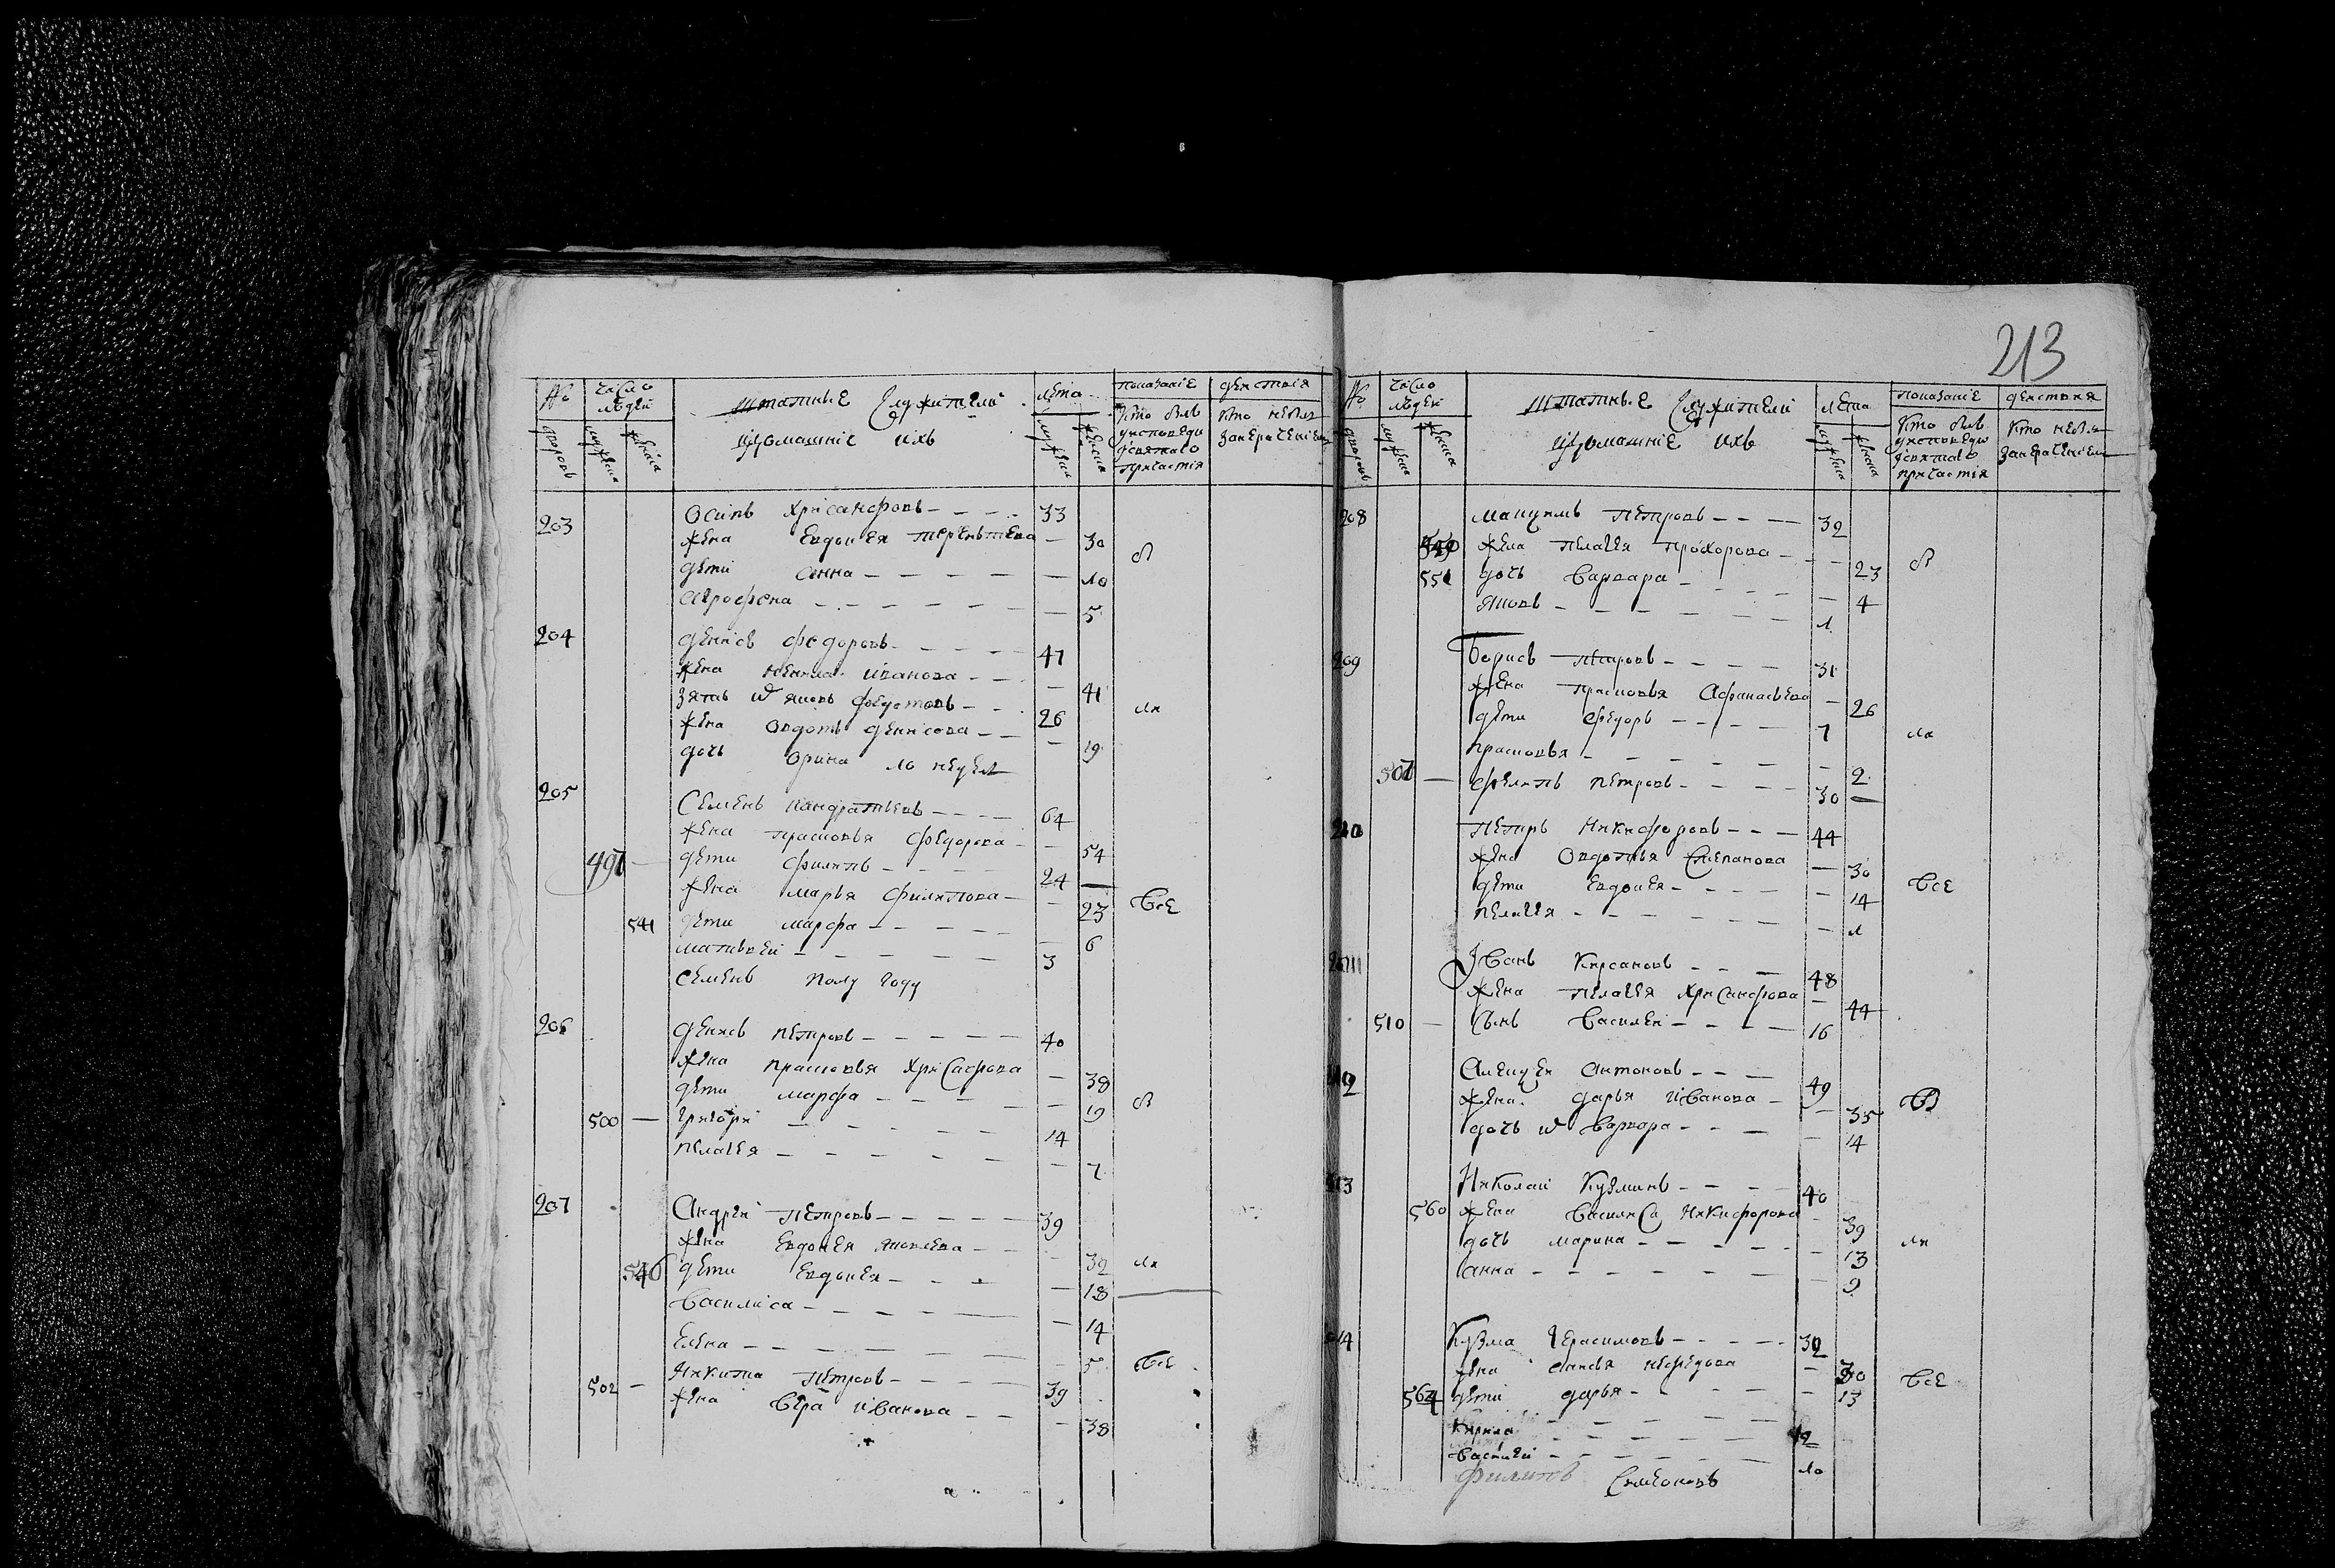 213
№ число людей штатные служители лета показанiе действiя
дворовъ мужеска женска и домашнiе ихъ мужеска женска кто былъ у исповеди и святаго причастiя кто не былъ за нерачениемъ
203 Осипъ Хрисанфовъ 33
жена Евдокея Терентева 30
дети Анна 10
Агрофена 5
204 Денисъ Федоровъ 47
жена Ивановa 41
зять Яковъ Федотовъ 26
жена Овдотья Денисова 19
дочь Орина 10 недел
205 Семенъ Кандратьевъ 64
жена Прасковья Федорова 54
497 дети Филипъ 24
жена Марья Филипова 23 все
541 дети Марфа 6
Матвей 3
Семенъ полу году
206 Денисъ Петровъ 40
жена Прасковья Хрисанфова 38
дети Марфа 19
500 Григори 14
Пелагея 7
207 Андрей Петровъ 39
жена Евдокея Яковлева 32
546 дети Евдокея 18
Василиса 14
Елена 5 все
502 Никита Петровъ 39
жена Вера Иванова 38
№ число людей штатные служители лета показанiе действия
дворовъ мужеска женска и домашнiе ихъ мужеска женска кто былъ у исповеди и святаго причастiя кто не былъ за нерачениемъ
208 Петровъ 32
жена Пелагея Прохорова 23
551 дочь Варвара 4
Яковъ 1
209 Борисъ Петровъ 31
жена Прасковья Афанасьева 26
дети Федоръ 7
Прасковья 2
507 Филипъ Петровъ 30
210 Петръ Никифоровъ 44
жена Овдотья Степанова 30
дети Евдокея 14 все
Пелагея 1
Иванъ Кирсановъ 48
жена Пелагея Хрисанфова 44
510 сынъ Василей 16
Алексей Антоновъ 49
жена Дарья Иванова 35
дочь Варвара 14
Николай Кузминъ 40
560 жена Василиса Никифорова 39
дочь Марина 13
Анна 9
Кузма Герасимовъ 32
жена Нефедова 30 все
564 дети Дарья 13
Кирила 12
Василей 10
Филипъ Симеоновъ